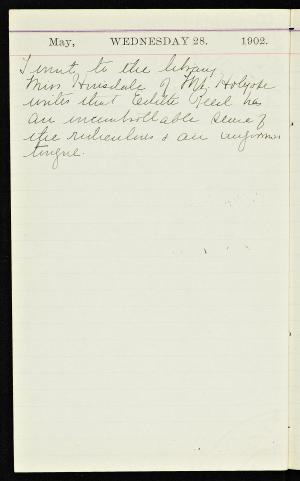 May, WEDNESDAY 28. 1902.
I went to the library
Miss Hinsdale of Mt. Holyoke
writes that Edith Reed has
an uncontrollable sense of
the ridiculous & an
tongue.